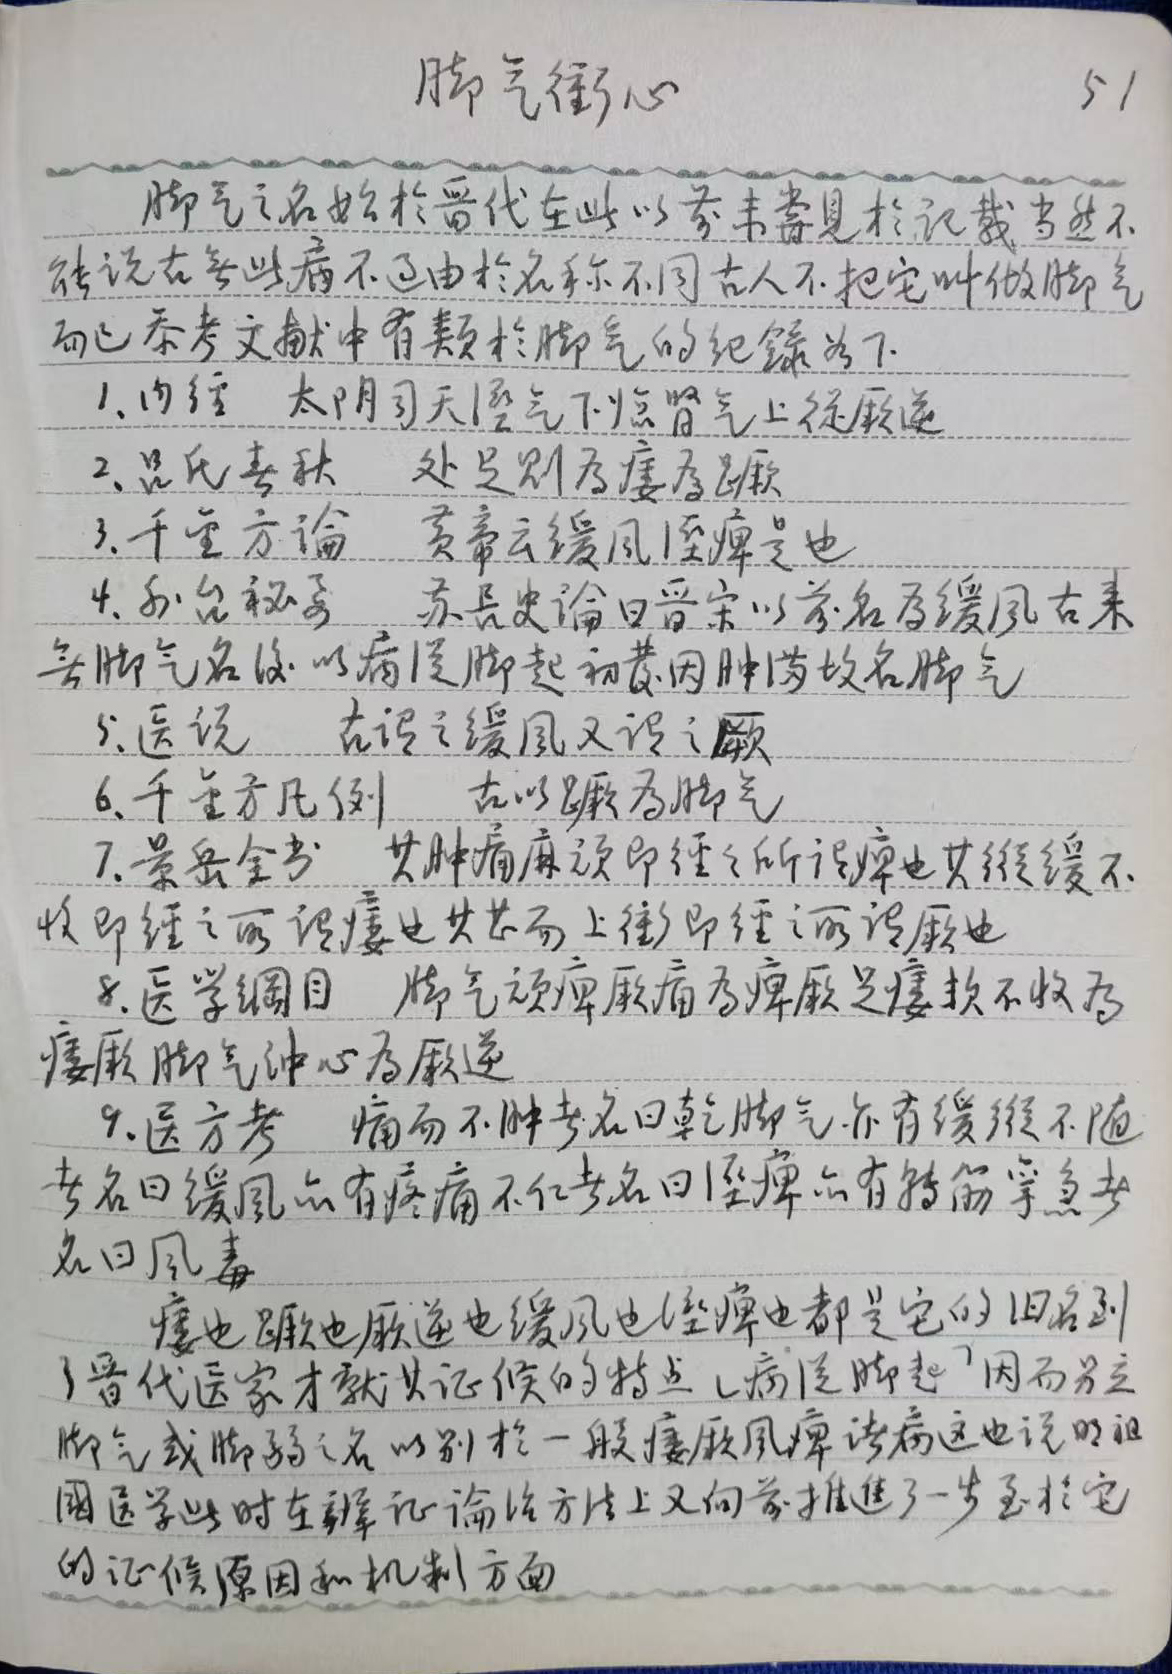 脚气衝心
51
脚气之名始於晋代在此以前未嘗見於记载当然不
能说古無此病不过由於名称不同古人不把它叫做脚气
而已参考文献中有類於脚气的纪録如下
1、内經 太阴司天湿气下临腎气上従厥逆
2、吕氏春秋 处足则為痿為蹶
3、千金方論 黄帝云缓风湿痺是也
4、外台秘要 苏長史論曰晋宋以前名為缓风古来
無脚气名後以病従脚起初發因肿满故名脚气
5、医说 古謂之缓風又謂之厥
6、千金方凡例 古以蹶為脚气
7、景岳全书 其肿痛麻顽即經之所謂痺也其縱缓不
收即經之所謂痿也其甚而上衝即經之所謂厥也
8、医学綱目 脚气顽痺厥痛為痺厥足痿软不收為
痿厥脚气冲心為厥逆
9、医方考 痛而不肿者名曰乾脚气亦有缓縱不随
者名曰缓風亦有疼痛不仁者名曰湿痺亦有转筋挛急者
名曰风毒
痿也蹶也厥逆也缓风也湿痺也都是它的旧名到
了晋代医家才就其证候的特点「病従脚起」因而另立
脚气或脚弱之名以别於一般痿厥風痺诸病这也说明祖
國医学此时在辨证論治方法上又向前推進了一步至於它
的证候原因和机制方面